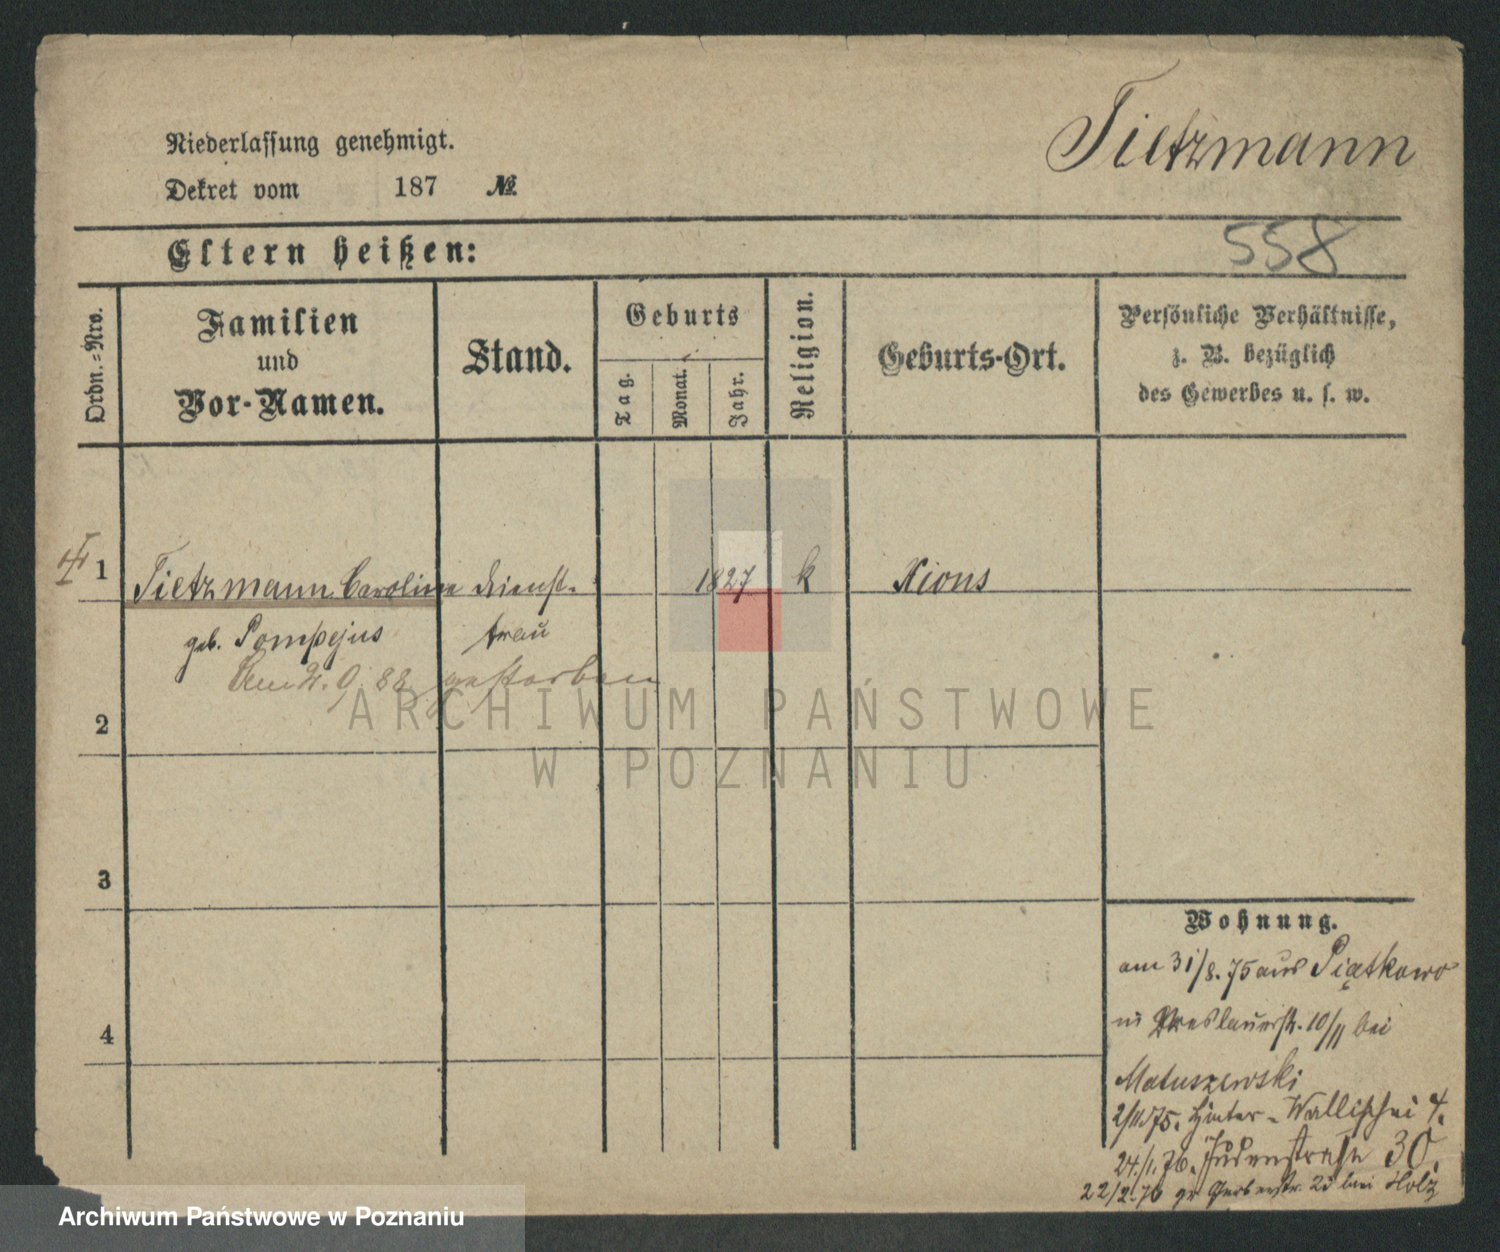 Tietzmann
Niederlassung genehmigt.
Dekret vom 187 №
558
Eltern heißen:
Ordn.-Nro.
Familien
und
Vor-Namen.
Stand.
Geburts
Tag.
Monat.
Jahr.
Religion.
Geburts-Ort.
Persönliche Verhältnisse,
z. B. bezüglich
des Gewerbes u. s. w.
1 Tietzmann Caroline Dienst- 1827 k Xions
geb. Pompejus frau
Am 2. 9. 88 gestorben
2
3
4
Wohnung.
am 31/8. 75 aus Piątkowo
in Breslauerstr. 10/11 bei
Matuszewski
2/11 75. Hinter-Wallischei 4.
24./1. 76. Judenstraße 30.
22/2. 76 gr Gerberstr. 23 bei Holz
ARCHIWUM PAŃSTWOWE
W POZNANIU
Archiwum Państwowe w Poznaniu